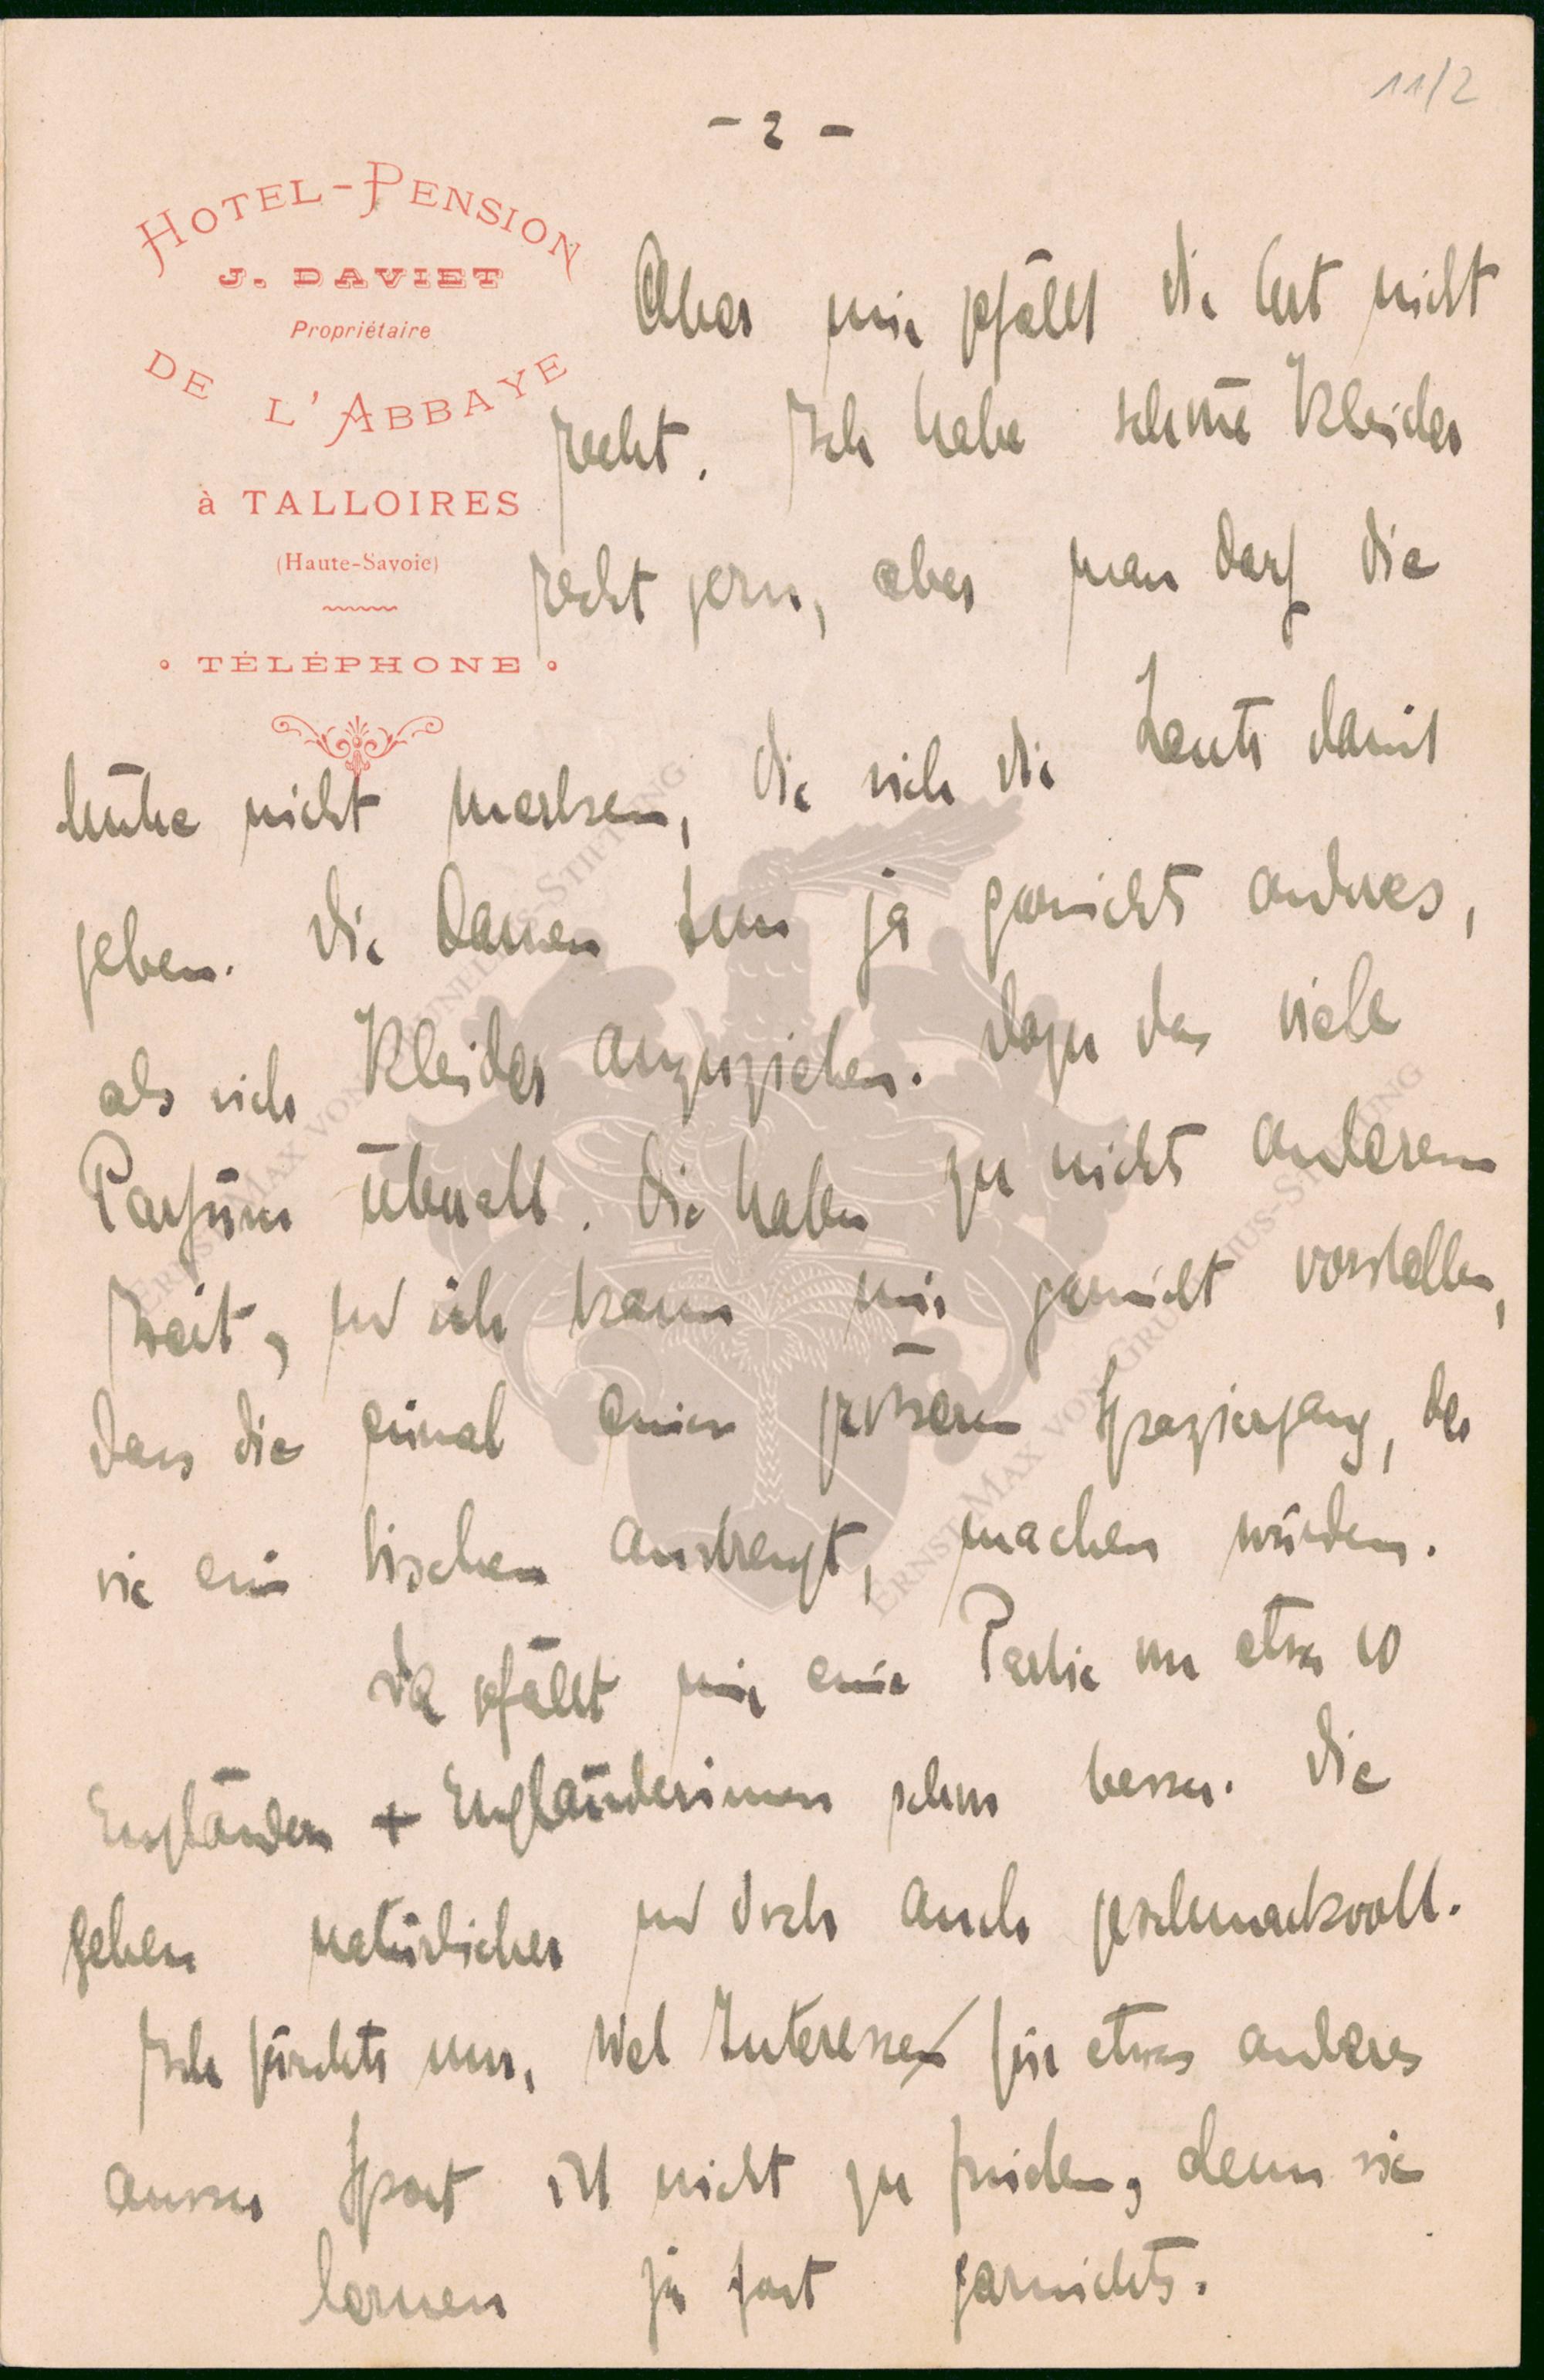 11/2
- 2 -
HOTEL-PENSION
J. DAVIET
Propriétaire
DE L'ABBAYE
à TALLOIRES
(Haute-Savoie)
• TÉLÉPHONE •
Aber mir gfällt die Art nicht
recht. Ich habe schöne Kleider
recht gern, aber man darf die
Mühe nicht merken, die sich die Leute damit
geben. Die Damen tun ja garnichts anderes,
als sich Kleider anzuziehen. Dazu das viele
Parfüm überall. Die haben zu nichts anderem
Zeit, und ich kann mir garnicht vorstellen,
dass die einmal einen grösseren Spaziergang, der
sie ein bischen anstrengt, machen würden.
Da gfällt mir eine Partie von etwa 10
Engländern + Engländerinnen schon besser. Die
gehen natürlicher und doch auch geschmackvoll.
Ich fürchte nur, viel Interesse für etwas anderes
ausser Sport ist nicht zu finden, denn sie
lernen ja fast garnichts.
ERNST MAX VON GRUNELIUS-STIFTUNG
ERNST MAX VON GRUNELIUS-STIFTUNG